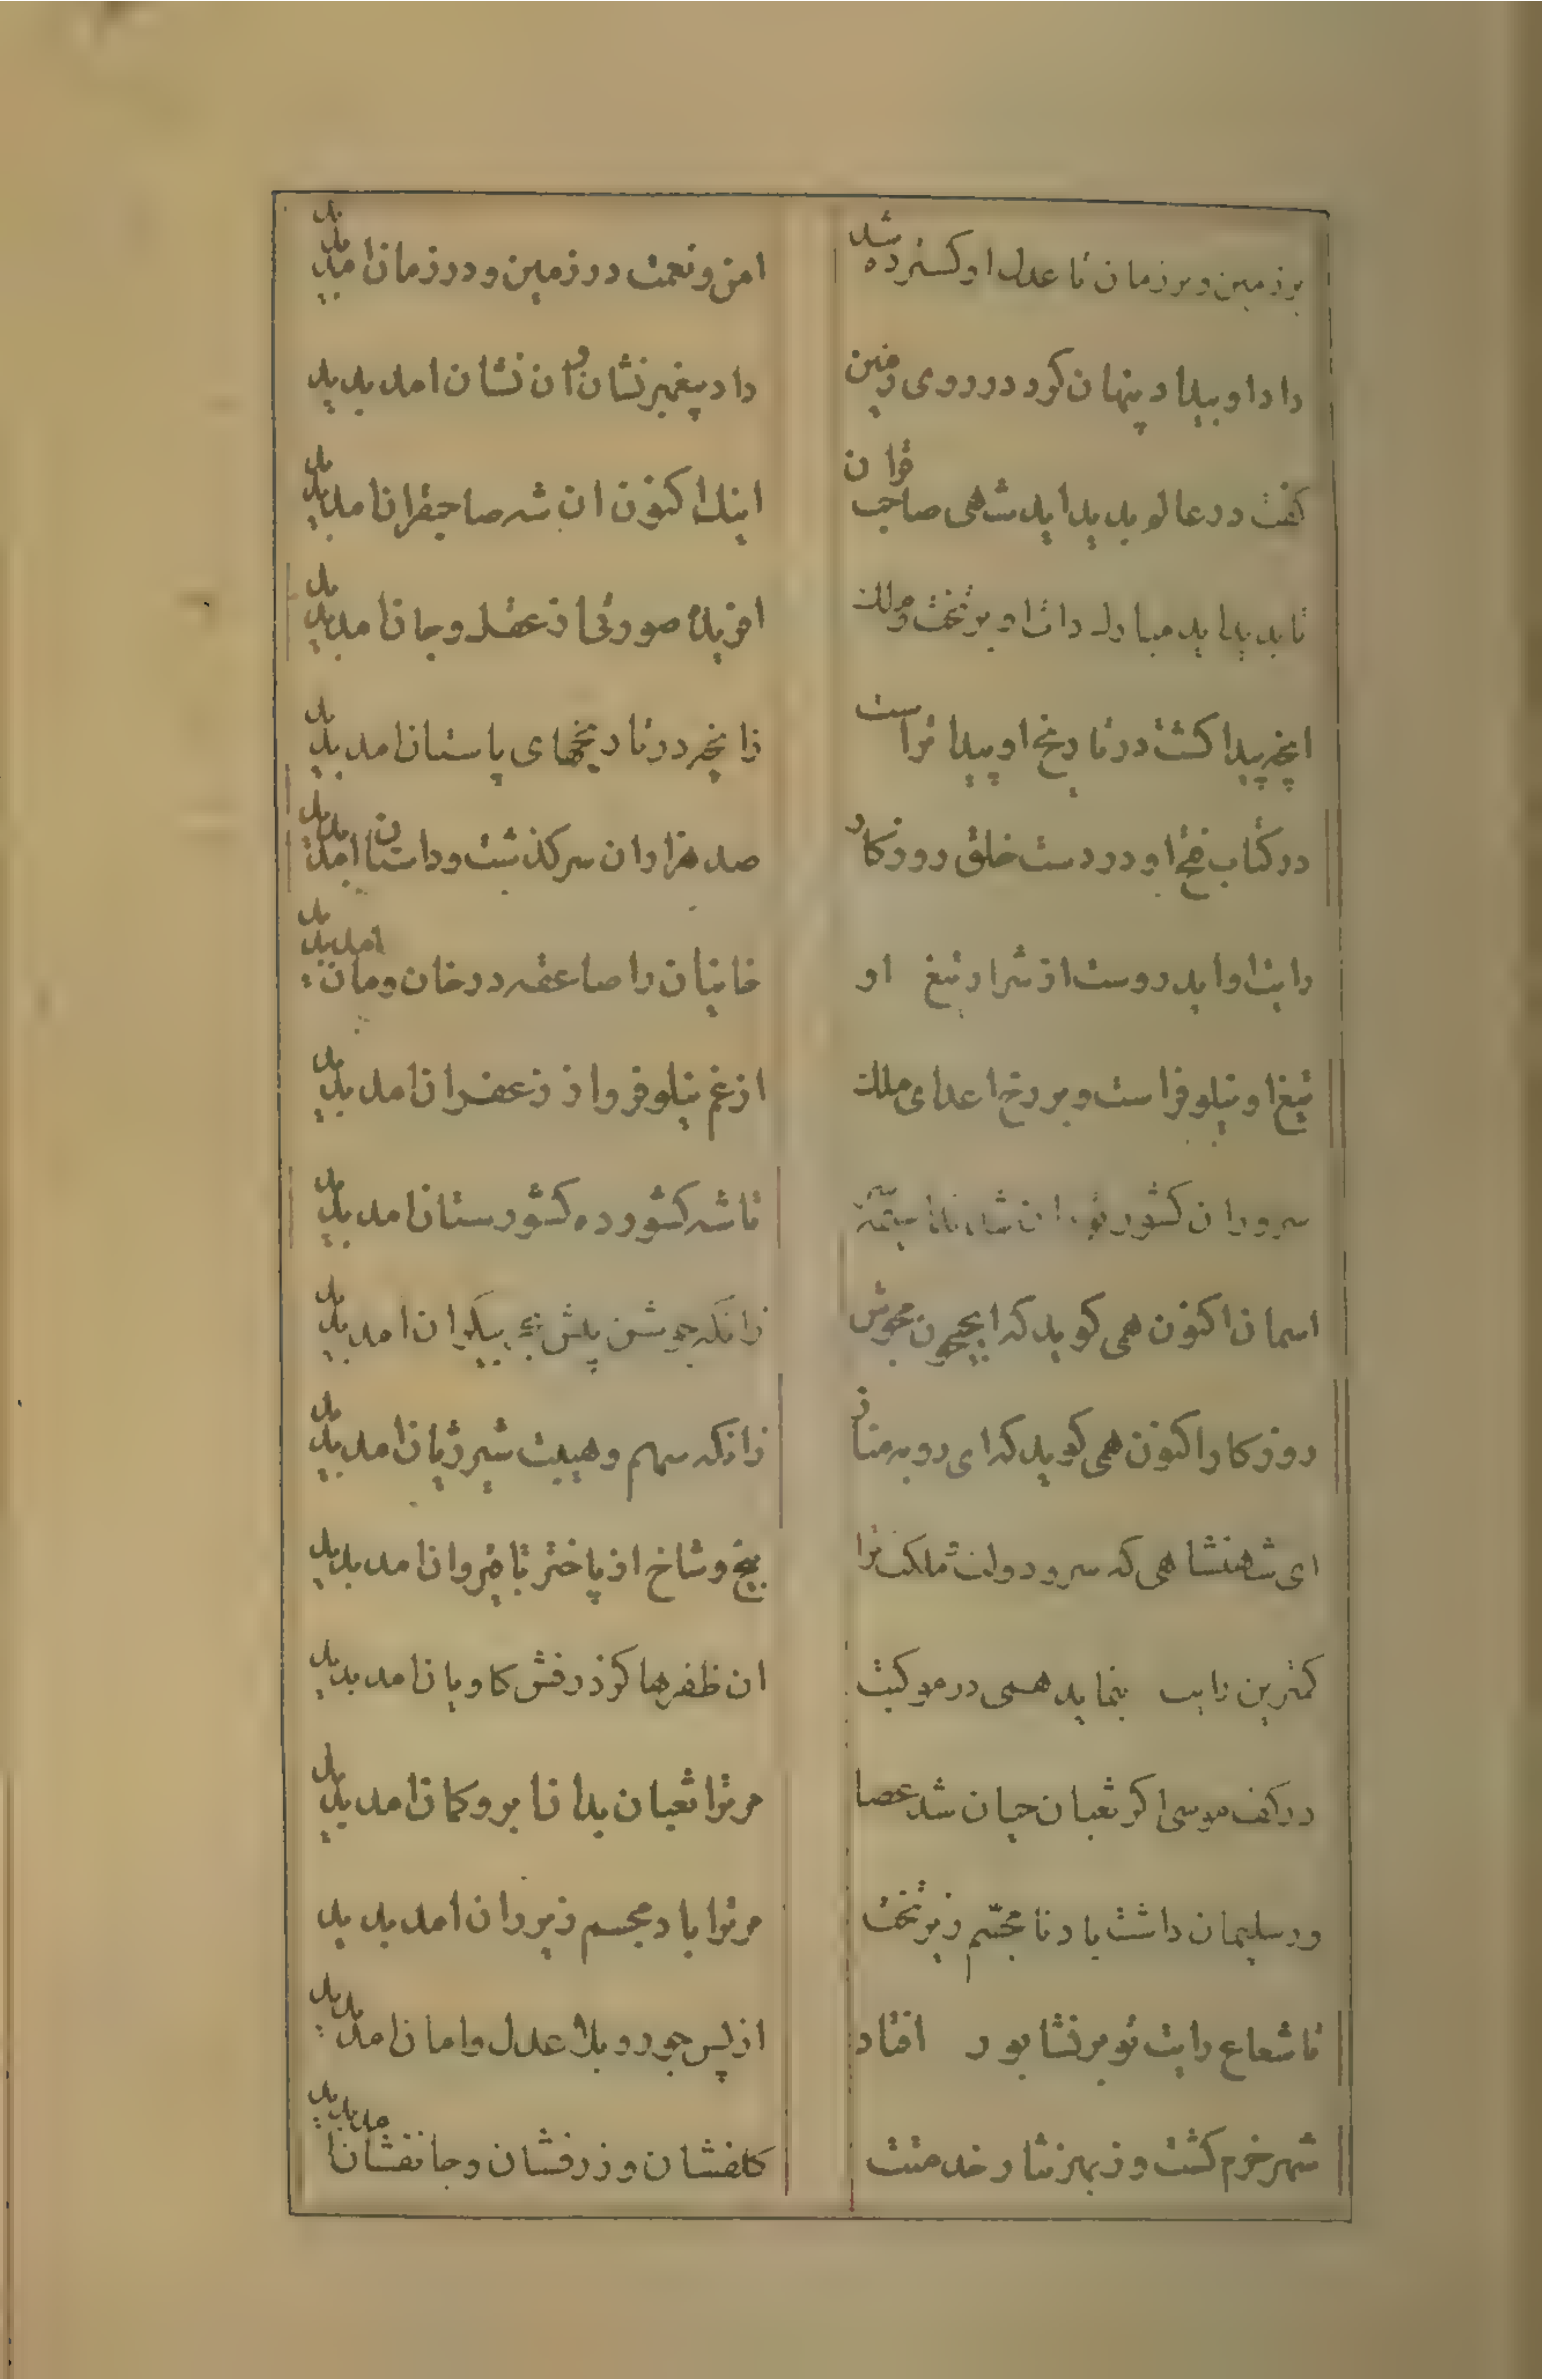 برزمین و برزمان تا عدل او کسترده شد
امن و نعمت در زمین و در زمان امد پدید
داد او بیداد پنهان کرد در روی زمین
داد پیغمبر نشان و ان نشان امد پدید
کفت در عالم پدید اید شاهی صاحب قران
اینک اکنون ان شه صاحبقران امد پدید
تا پدید اید مبارک ذات او بر تخت و ملک
افریده صورتی از عقل و جان امد پدید
انچه پیدا کشت در تاریخ او پیداتر است
زانچه در تاریخهای باستان امد پدید
در کتاب فتح او در دست خلق روزکار
صد هزاران سرکذشت و داستان امد پدید
رایت او اید دوست از شرار تیغ او
خانیان را صاعقه در خان و مان امد پدید
تیغ او نیلوفر است و بر رخ اعدای ملک
از غم نیلوفر و از زعفران امد پدید
سروران کشور توران شدند
تا شه کشورده کشورستان امد پدید
اسمان اکنون همی کوید که ای جیحون مجوش
زانکه جوشن پیش بحر بیکران امد پدید
روزکار اکنون همی کوید که ای روبه مناز
زانکه سهم و هیبت شیر ژیان امد پدید
ای شهنشاهی که سرو دولت ملکت ترا
بیخ و شاخ از باختر تا قیروان امد پدید
کمترین رایت بنماید همی در موکبت
ان ظفرها کز درفش کاویان امد پدید
در کف موسی اکر ثعبان جهان شد عصا
مر ترا ثعبان بدان ابرو کمان امد پدید
ور سلیمان داشت باد نامجسّم زیر تخت
مر ترا باد مجسم زیر ران امد پدید
تا شعاع رایت تو بر نشابور افتاد
از پس جور و بلا عدل و امان امد پدید
شهر خرم کشت و ز بهر نثار خدمتت
کلفشان و زرفشان و جانفشان امد پدید